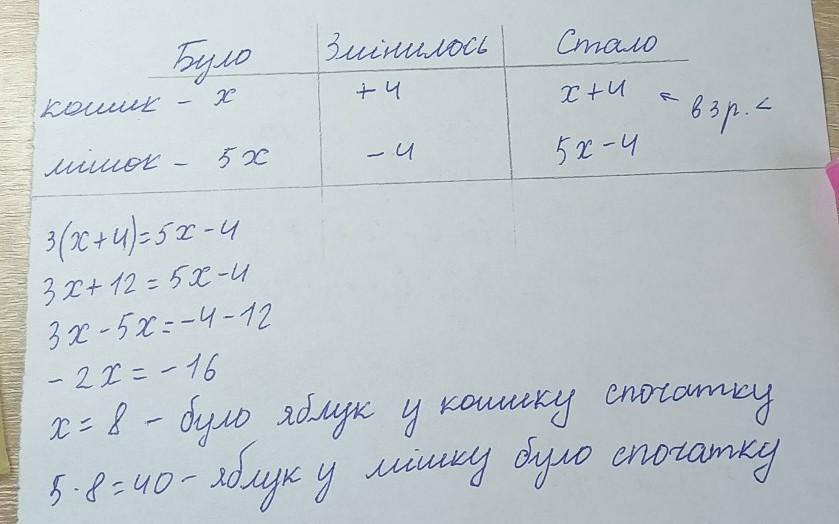 Було Змінилось Стало
кошик - x +4 x+4 ← в 3 р. <
мішок - 5x -4 5x-4
3(x+4)=5x-4
3x+12=5x-4
3x-5x=-4-12
-2x=-16
x=8 - було яблук у кошику спочатку
5·8=40- яблук у мішку було спочатку